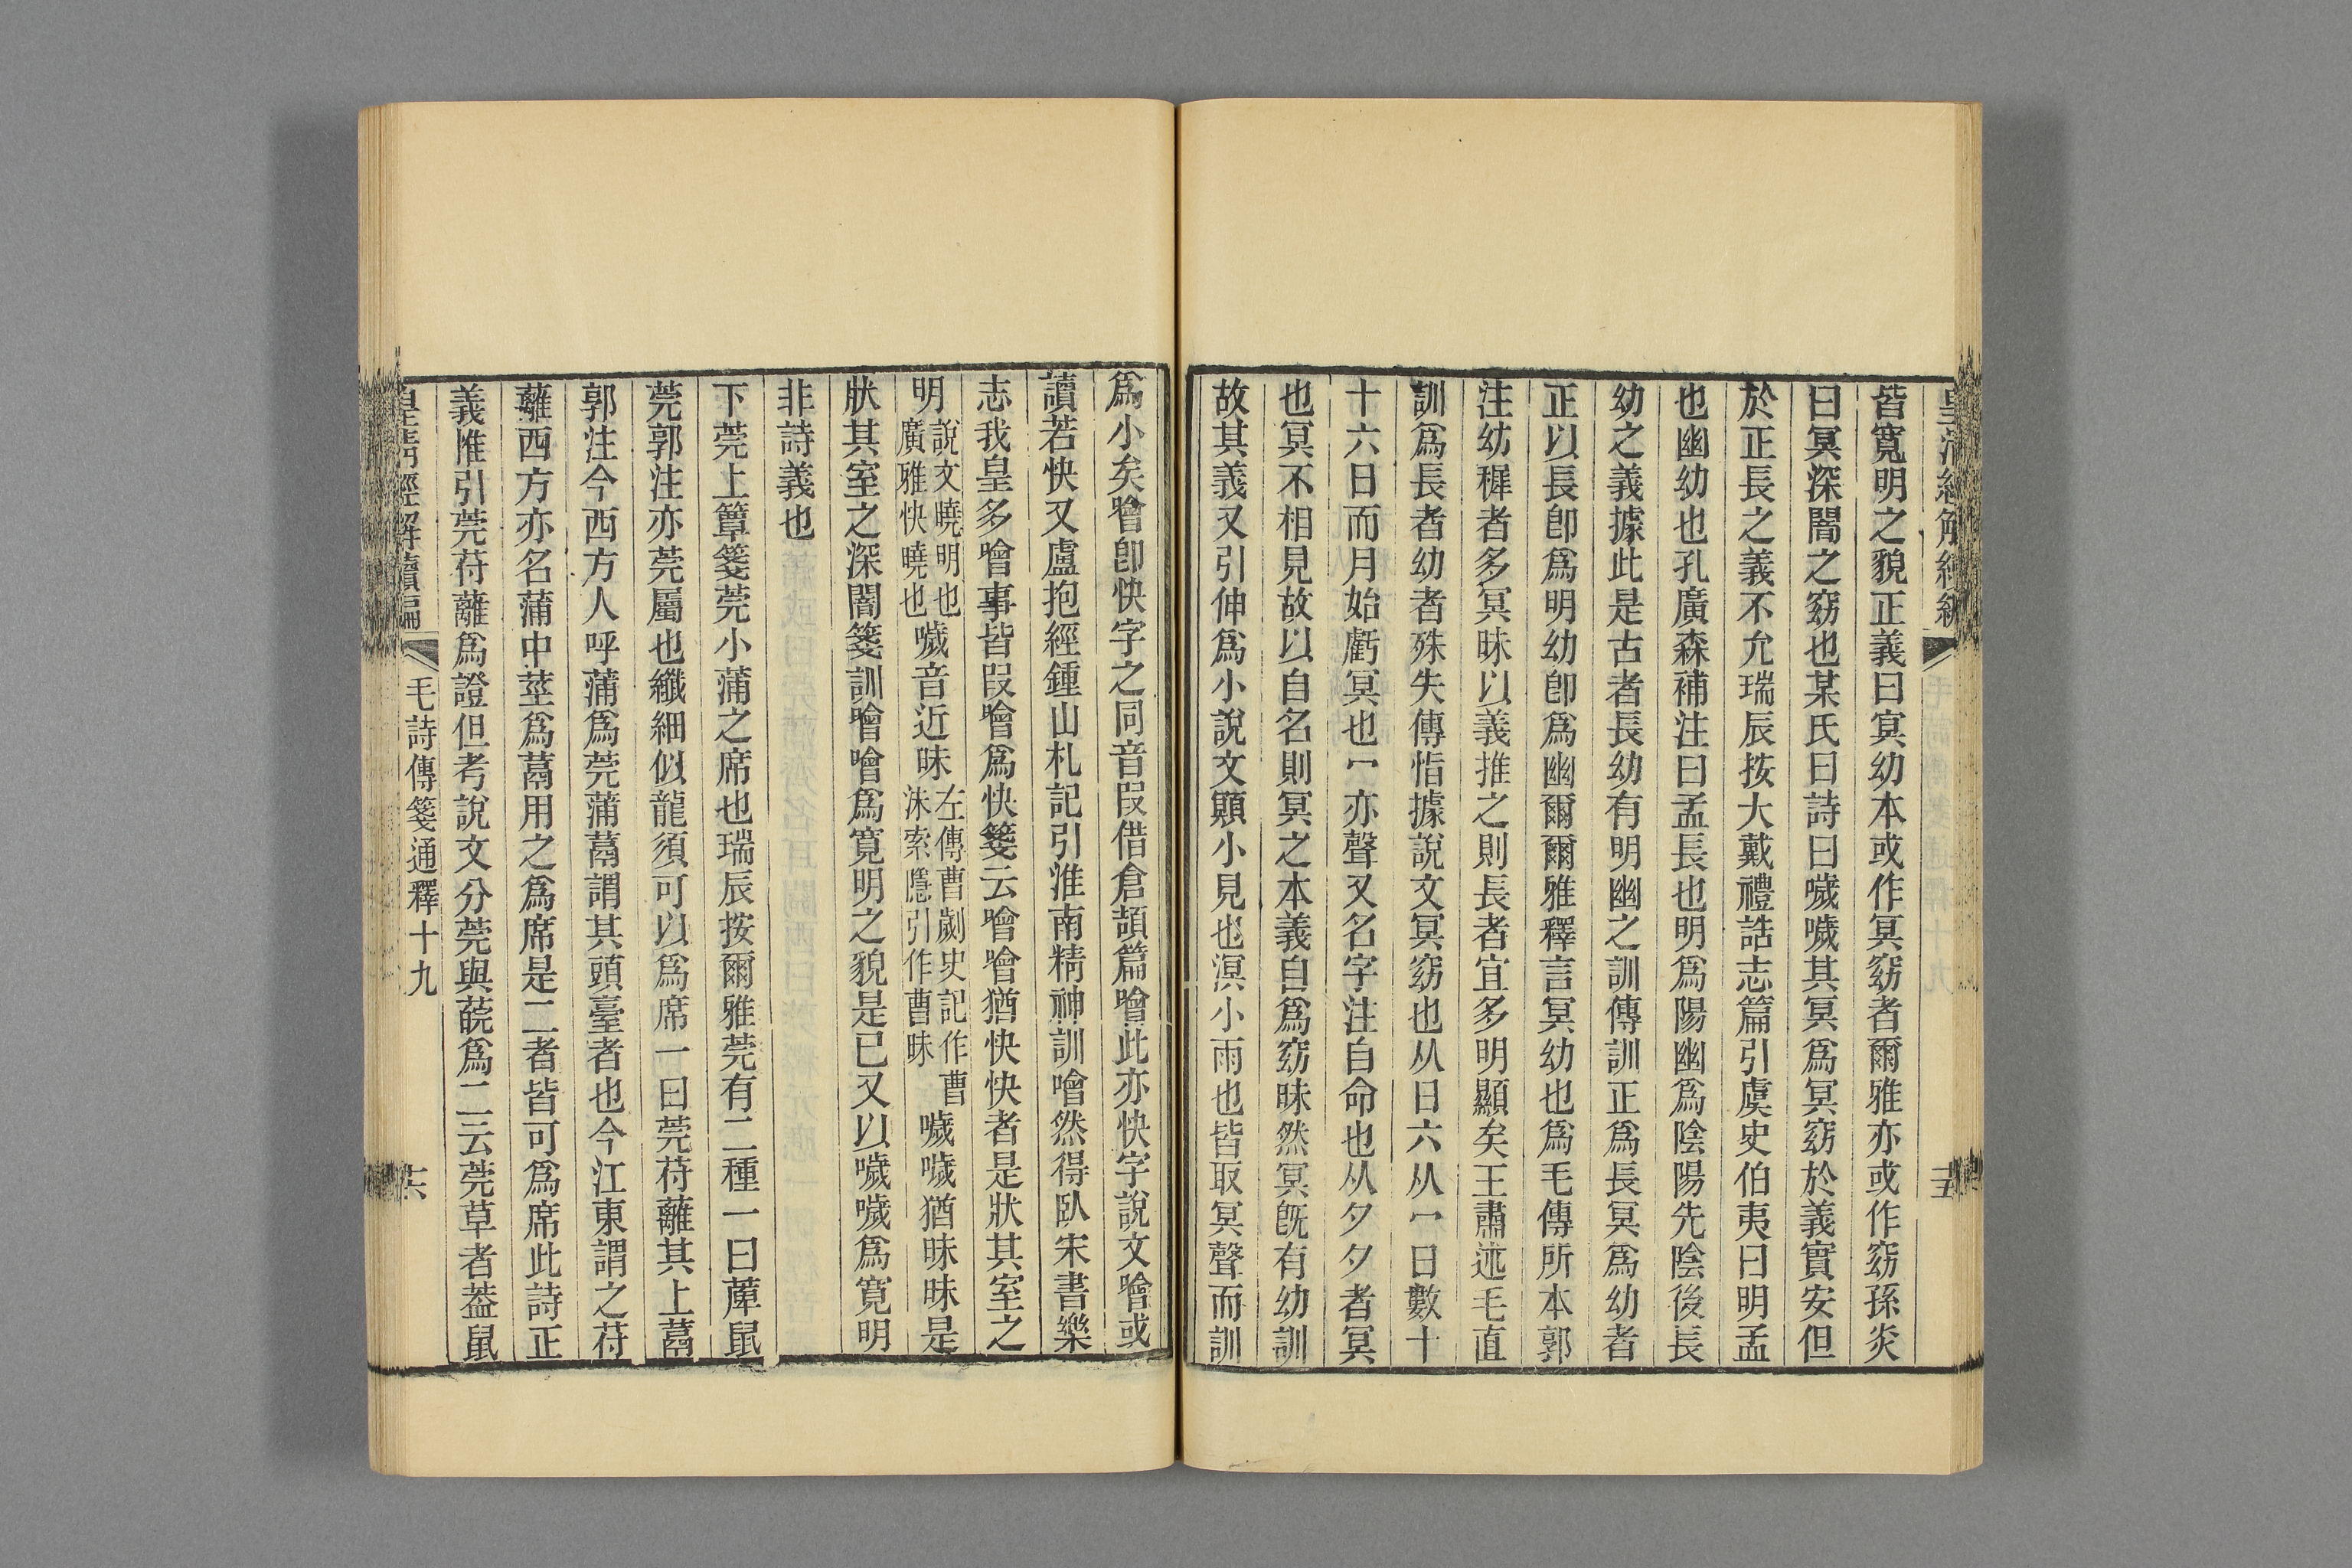 皆寬明之貌正義曰寘幼本或作冥窈者爾雅亦或作窈孫炎
曰冥深闇之窈也某氏曰詩曰噦噦其冥爲冥窈於義實安但
於正長之義不允瑞辰按大戴禮誥志篇引虞史伯夷曰明孟
也幽幼也孔廣森補注曰孟長也明爲陽幽爲陰陽先陰後長
幼之義據此是古者長幼有明幽之訓傳訓正爲長冥爲幼者
正以長卽爲明幼卽爲幽爾爾雅釋言冥幼也爲毛傳所本郭
注幼穉者多冥昧以義推之則長者宜多明顯矣王肅述毛直
訓爲長者幼者殊失傳恉據說文冥窈也从日六从冖日數十
十六日而月始虧冥也冖亦聲又名字注自命也从夕夕者冥
也冥不相見故以自名則冥之本義自爲窈昧然冥旣有幼訓
故其義又引伸爲小說文顠小見也溟小雨也皆取冥聲而訓
爲小矣噲卽快字之同音叚借倉頡篇噲此亦快字說文噲或
讀若快又盧抱經鍾山札記引淮南精神訓噲然得臥宋書樂
志我皇多噲事皆叚噲爲快箋云噲噲猶快快者是狀其室之
明說文曉明也廣雅快曉也噦音近昧左傳曹劌史記作曹沬索隱引作曹昧噦噦猶昧昧是
狀其室之深闇箋訓噲噲爲寬明之貌是已又以噦噦爲寬明
非詩義也
下莞上簟箋莞小蒲之席也瑞辰按爾雅莞有二種一曰蓽鼠
莞郭注亦莞屬也纖細似龍須可以爲席一曰莞苻蘺其上蒚
郭注今西方人呼蒲爲莞蒲蒚謂其頭臺者也今江東謂之苻
蘺西方亦名蒲中莖爲蒚用之爲席是二者皆可爲席此詩正
義惟引莞苻蘺爲證但考說文分莞與䓴爲二云莞草者葢鼠
皇清經解續編
毛詩傳箋通釋十九